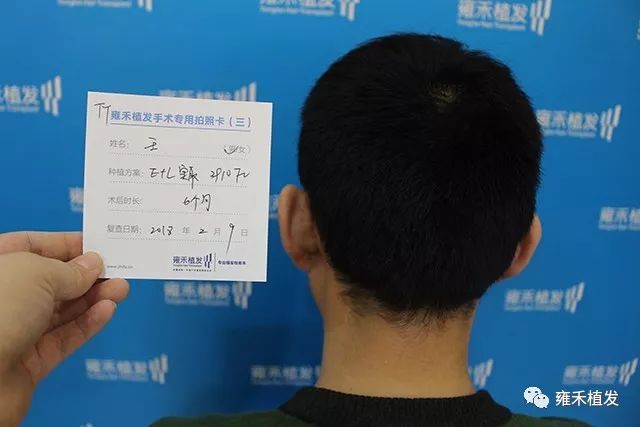 雍禾植发
雍禾植发
TY
雍禾植发手术专用拍照卡（三）
姓名： 王 （男/女）
种植方案： 2910
术后时长： 6个月
复查日期： 2018 年 2 月 9 日
雍禾植发
雍禾植发
雍禾植发
雍禾植发
雍禾植发
雍禾植发
雍禾植发
雍禾植发